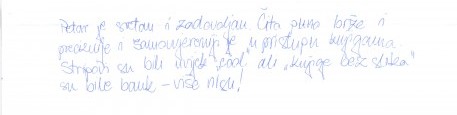 Petar je sretan i zadovoljan Čita puno brže i
preciznije i zainteresiraniji je u pristupu knjigama.
Stripovi su bili uvijek cool ali „knjige bez slika"
su bile bauk – više nisu!